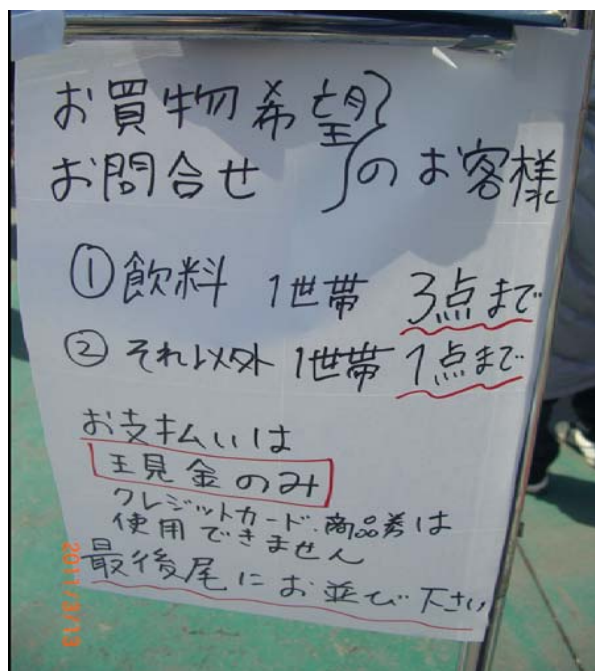 お買物希望
お問合せ のお客様
①飲料 1世帯 3点まで
②それ以外 1世帯 1点まで
お支払いは
現金のみ
クレジットカード.商品券は
使用できません
最後尾にお並び下さい
2011/3/13